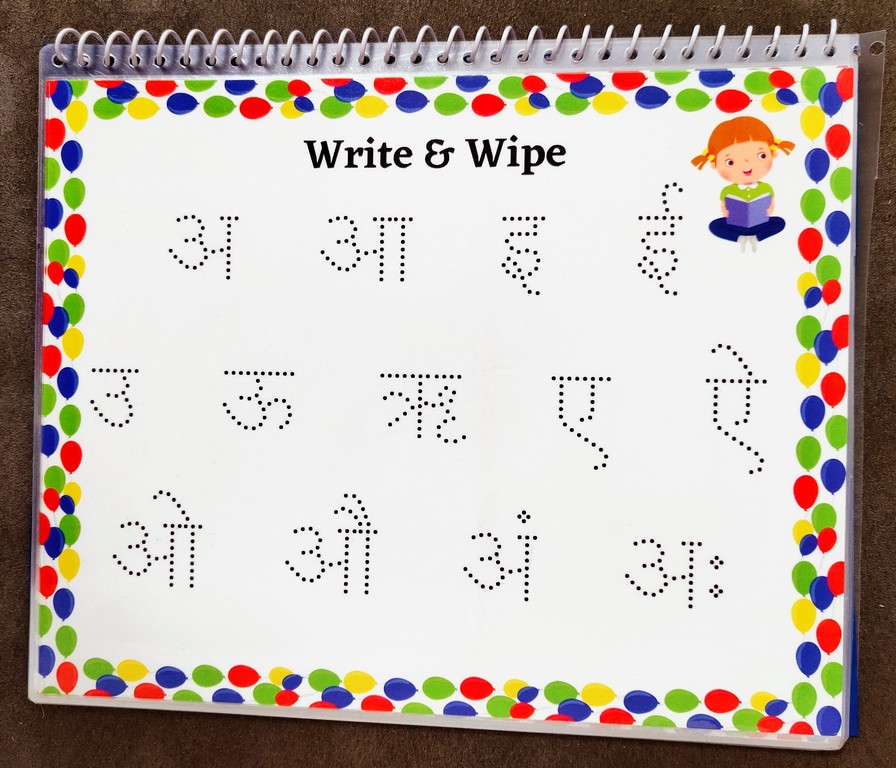 Write & Wipe
अ आ इ ई
उ ऊ ऋ ए ऐ
ओ औ अं अः